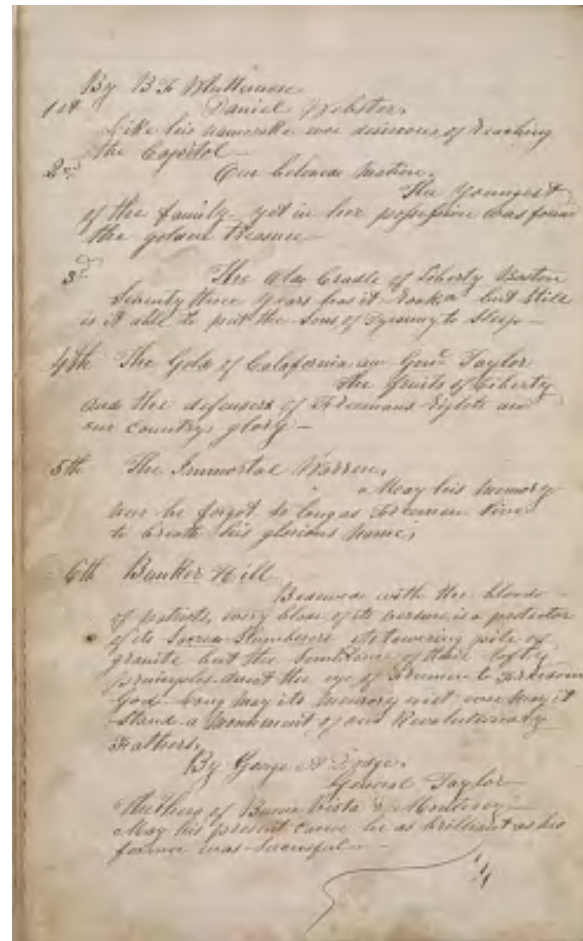 By B F Whittemore
1st Daniel Webster,
Like his namesake ever desirous of reaching
the Capitol—
2nd Our beloved nation.
The Youngest
of the family yet in her possession was found
the golden treasure—
3d The Old Cradle of Liberty Boston
Seventy three years has it rock'd but still
is it able to put the Sons of Tyranny to sleep—
4th The Gold of California and Genl Taylor
The fruits of Liberty
and the defenders of Freemans rights are
our Countrys glory—
5th The Immortal Warren,
May his memory
ne'er be forgot so long as Freemen live
to breath his glorious name,
6th Bunker Hill
Bedewed with the blood
of patriots, every blade of its verdure is a protector
of its Sacred Slumberers its towering pile of
granite but the of their lofty
principles the eye of Freemen to Freedoms
God— long may its memory exist ever may it
Stand a Monument of our Revolutionary
Fathers,
By George A Dodge.
General Taylor—
The Hero of Buena Vista & Monterey—
May his present career be as brilliant as his
former was successful—